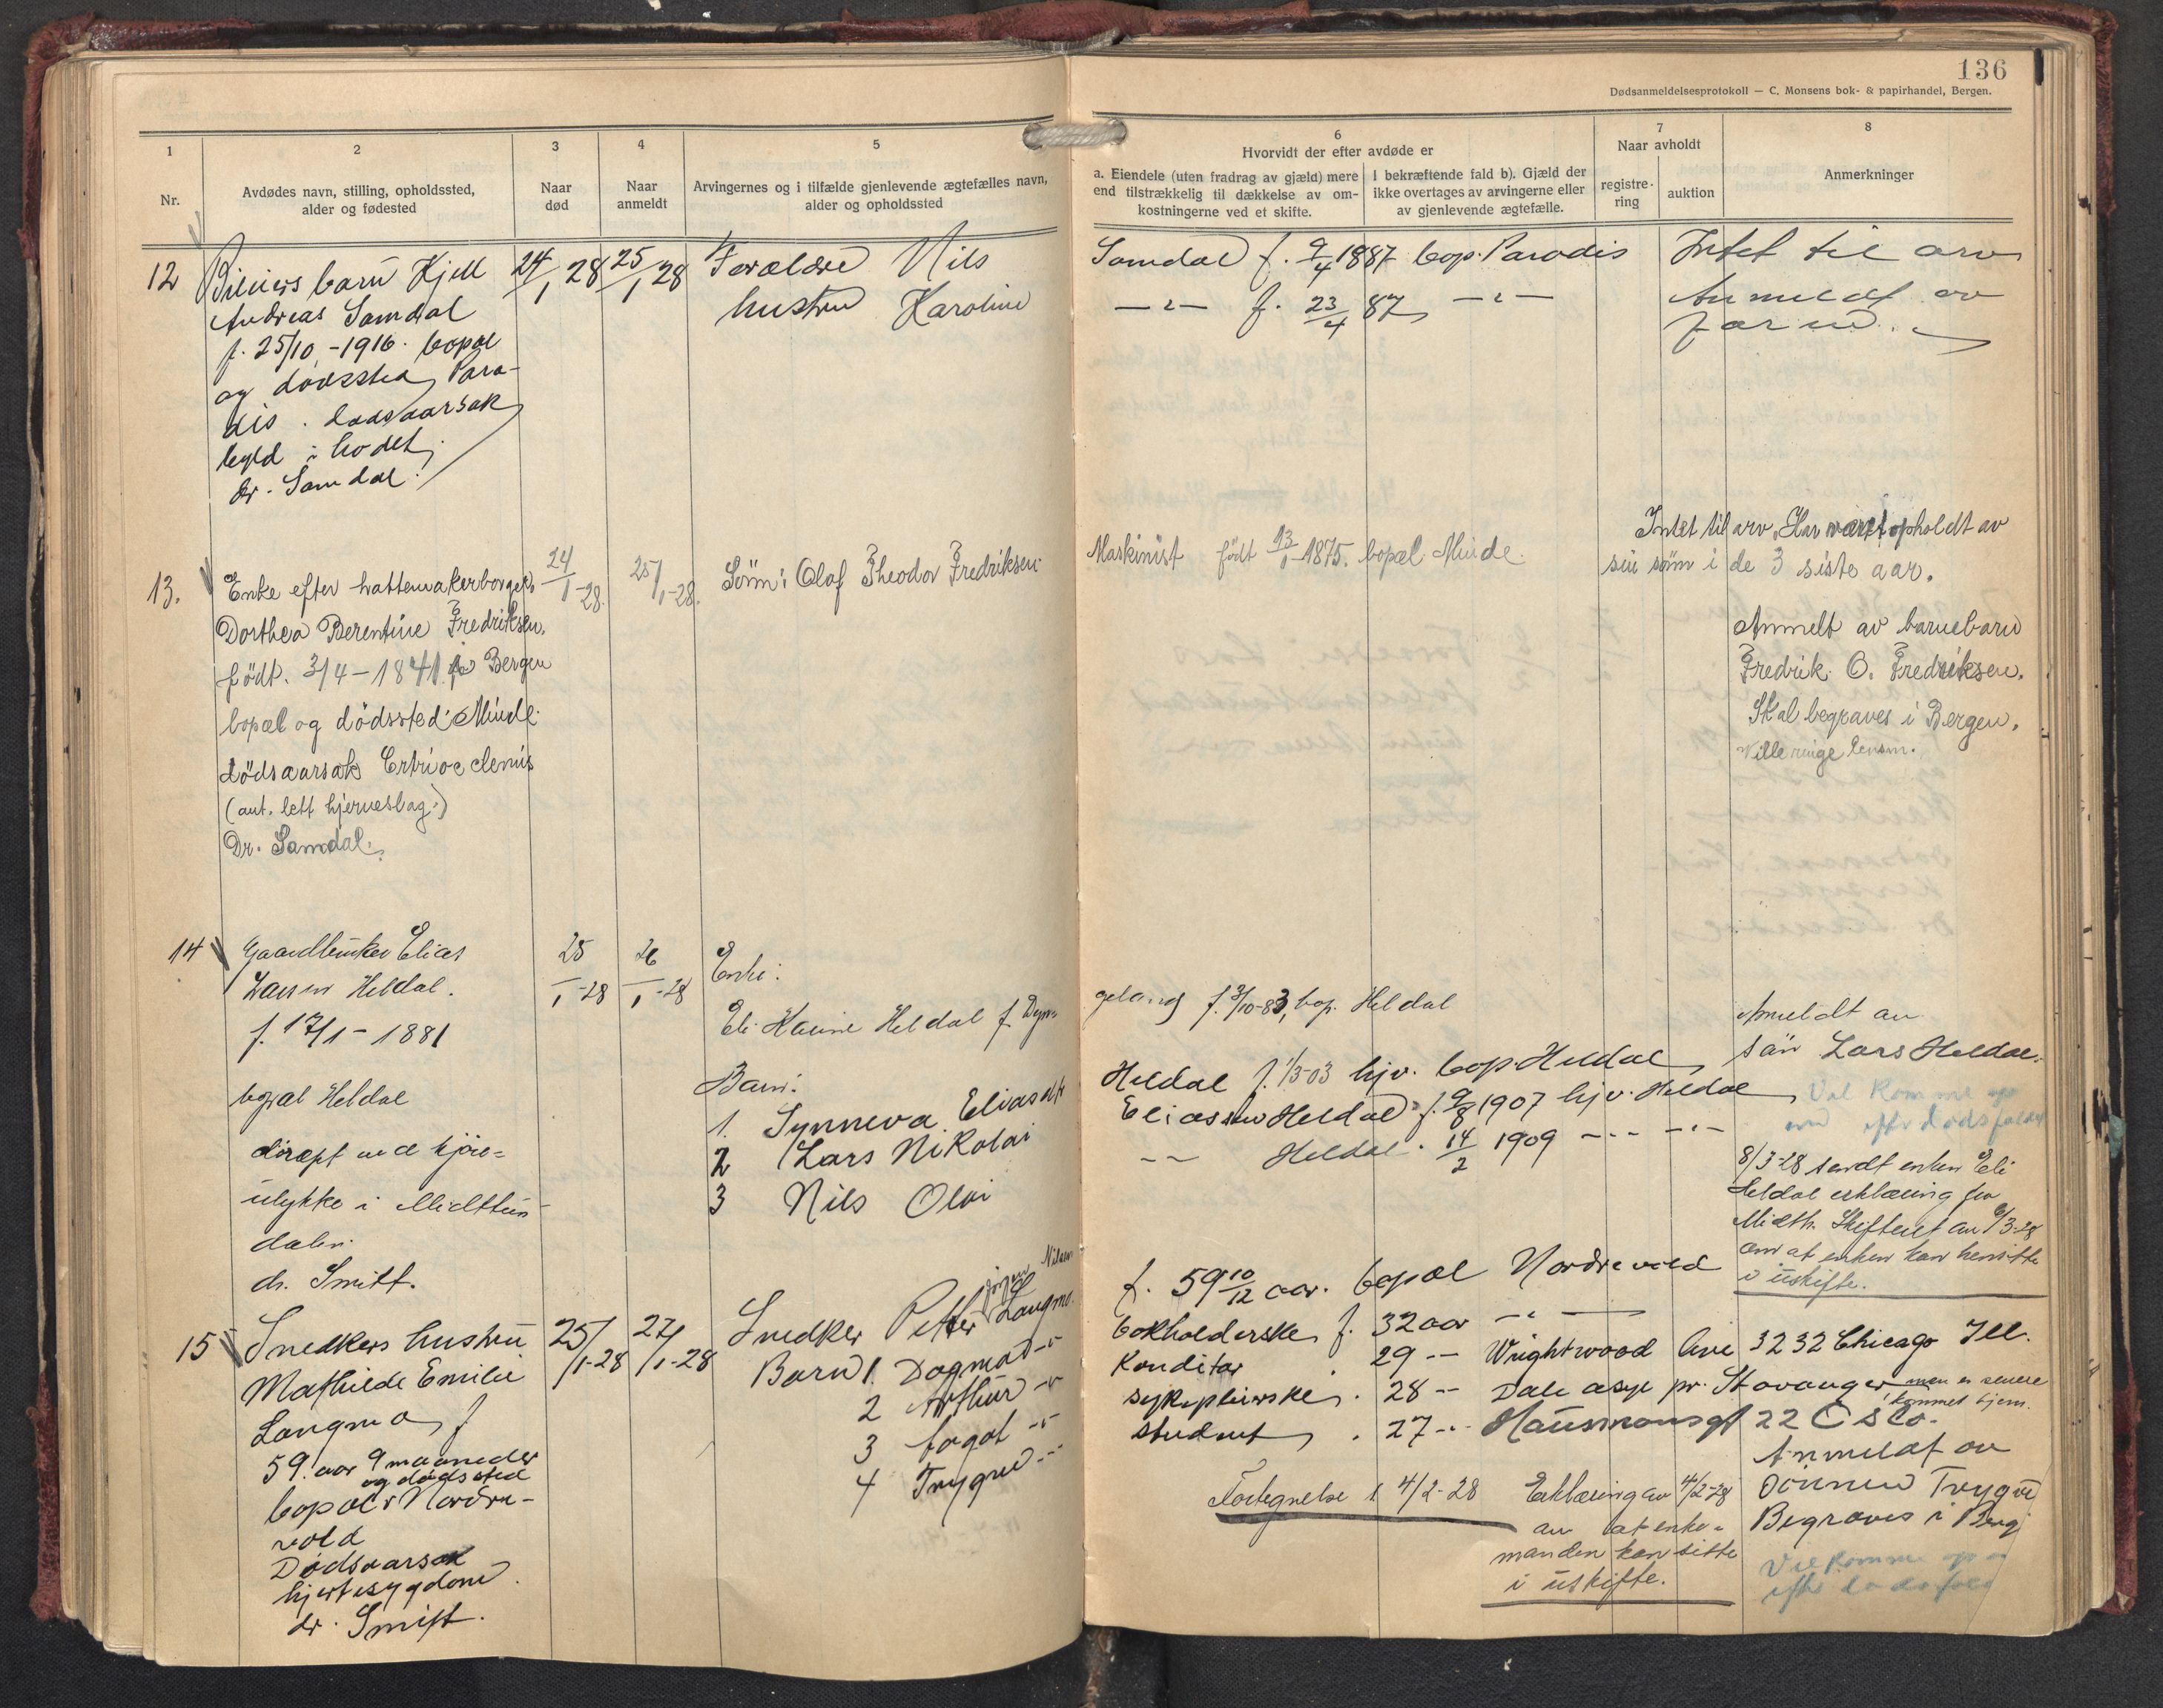 136
Dødsanmeldelsesprotokoll — C. Monsens bok- & papirhandel, Bergen.
1
Nr.
2
Avdødes navn, stilling, opholdssted,
alder og fødested
3
Naar
død
4
Naar
anmeldt
5
Arvingernes og i tilfælde gjenlevende ægtefælles navn,
alder og opholdssted
6
Hvorvidt der efter avdøde er
a. Eiendele (uten fradrag av gjæld) mere
end tilstrækkelig til dækkelse av om-
kostningerne ved et skifte.
I bekræftende fald b). Gjæld der
ikke overtages av arvingerne eller
av gjenlevende ægtefælle.
7
Naar avholdt
registre-
ring
auktion
8
Anmerkninger
12
barn Kjell
Andreas Samdal
f. 25/10-1916. bopæl
og dødssted Para-
dis. dødsaarsak
byld i hodet.
dr. Samdal.
24/1 28
25/1 28
Forældre Nils
hustru Karoline
Samdal f. 9/4 1887 bop. Paradis
— " — f. 23/4 87 — " —
Intet til arv
Anmeldt av
faren.
13.
Enke efter hattemakerborger
Dorthea Berentine Fredriksen.
født. 3/4-1841 Bergen
bopæl og dödssted: Minde.
dödsaarsak
(ant. lett hjerneslag.)
Dr. Samdal.
24/1-28.
25/1-28.
Sönn: Olaf Theodor Fredriksen.
Maskinist født 13/1-1875. bopæl Minde.
Intet til arv. Har vært opholdt av
sin sönn i de 3 siste aar.
Anmelt av barnebarn
Fredrik O. Fredriksen.
Skal begraves i Bergen.
Ville ringe lensm.
14
Gaardbruker Elias
Larsen Heldal.
f. 17/1-1881
bopæl Heldal
dræpt ved kjöre=
ulykke i Midttun
dalen.
dr. Smitt.
25/1-28
26/1-28
Enke:
Eli Karine Heldal f. Dyn=
Barn:
1. Synneva Eliasdtr
2 Lars Nikolai
3 Nils Olai
geland f. 3/10-83, bop. Heldal
Heldal f. 1/3-03 hjv. bop. Heldal
Eliassen Heldal f. 9/8 1907 hjv. Heldal
— — Heldal. 14/2 1909 — " — — " —
Anmeldt av
sön Lars Heldal.
Vil komme op
efter dødsfaldet
8/3-28 sendt enken Eli
Heldal erklæring fra
Midth. Skifteret av 6/3-28
om at enken kan hensitte
i uskifte.
15
Snedkers hustru
Mathilde Emilie
Langmo f
59 aar 9 maaneder
og dødssted
bopæl Nordre-
vold
Dødsaarsak
hjertesygdom.
dr. Smitt.
25/1-28
27/1-28
Snedker Petter Jörgen Nilsen Langmo.
Barn 1. Dagmar — " —
2 Arthur — " —
3 — " —
4 Trygve — " —
f. 59 10/12 aar. bopæl Nordrevold
bokholderske f. 32 aar — " —
Konditor 29 — Wrightwood Ave 3232 Chicago Ill.
sykepleierske. 28 — Dale asyl pr. Stavanger men er senere
kommet hjem.
student. 27 — Hausmansgt 22 Oslo.
Anmeldt av
sönnen Trygve
Begraves i Berg
Vil komme op
efter dødsfald
Fortegnelse 4/2-28
Erklæring av 4/2-28
om at enke=
manden kan sitte
i uskifte.